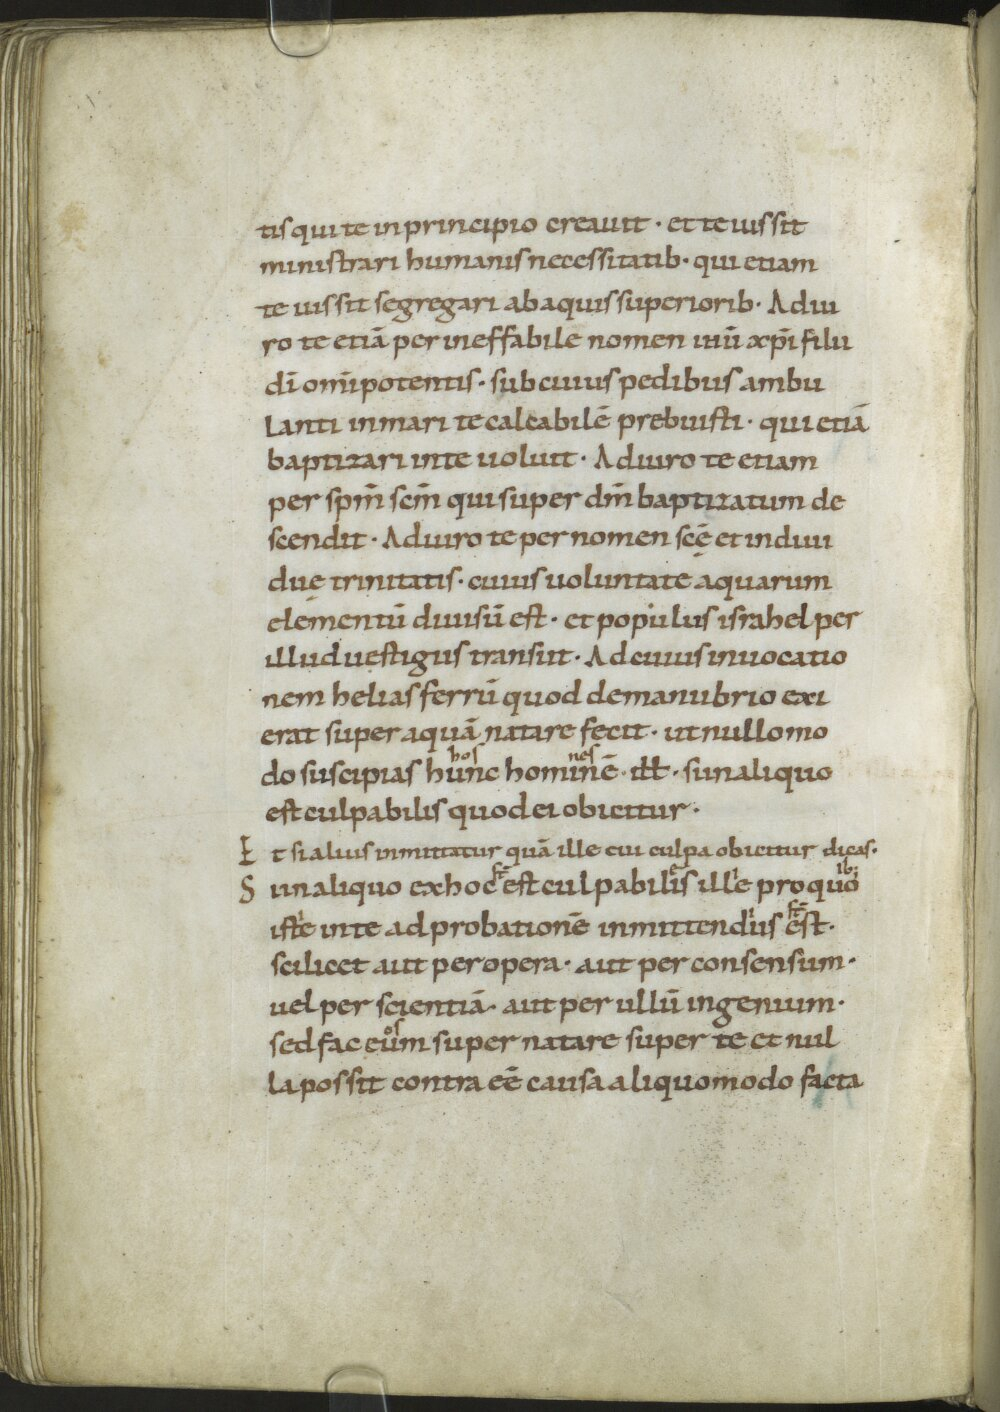 tis qui te in principio creauit · et te iussit
ministrari humanis necessitatib· qui etiam
te iussit segregari ab aquis superiorib· Adiu
ro te etiā per ineffabile nomen ihū xp̄i filii
dī om̄ipotentis · sub cuius pedibus ambu
lanti in mari te calcabilē prebuisti · qui etiā
baptizari in te uoluit · Adiuro te etiam
per sp̄m sc̄m qui super dn̄m baptizatum de
scendit · Adiuro te per nomen scē et indiui
duę trinitatis · cuius uoluntate aquarum
elementū diuisū est · et populus israhel per
illud uestigiis transiit · Ad cuius inuocatio
nem helias ferrū quod de manubrio exi
erat super aquā natare fecit · ut nullo mo
hos nes
do suscipias hunc hominē · ill · si in aliquo
est culpabilis quod ei obicitur ·
Et si alius inmittatur quā ille cui culpa obicitur dicas ·
st̄ e i ib;
Si in aliquo ex hoc est culpabilis ille pro quo
i i st̄
iste in te ad probationē inmittendus est ·
scilicet aut per opera · aut per consensum ·
uel per scientiā · aut per ullū ingenium ·
os
sed fac eum super natare super te et nul
la possit contra eē causa aliquo modo facta